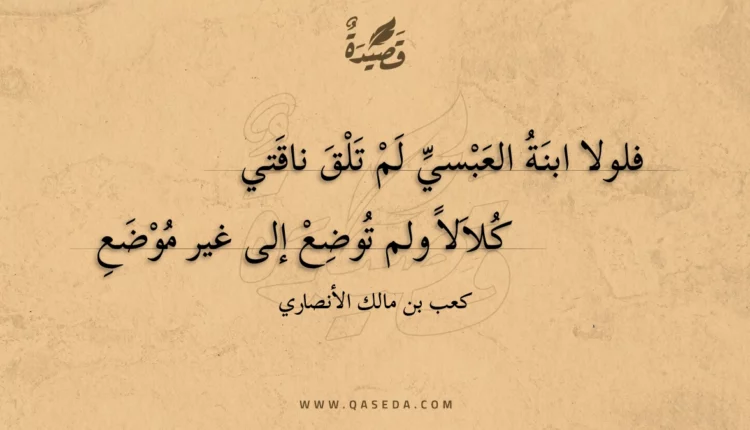 قَصِيْدَةٌ
فلولا ابنَةُ العَبْسيِّ لَمْ تَلْقَ ناقَتي
كُلاَلاً ولم تُوضِعْ إلى غير مُوْضَعِ
كعب بن مالك الأنصاري
WWW.QASEDA.COM